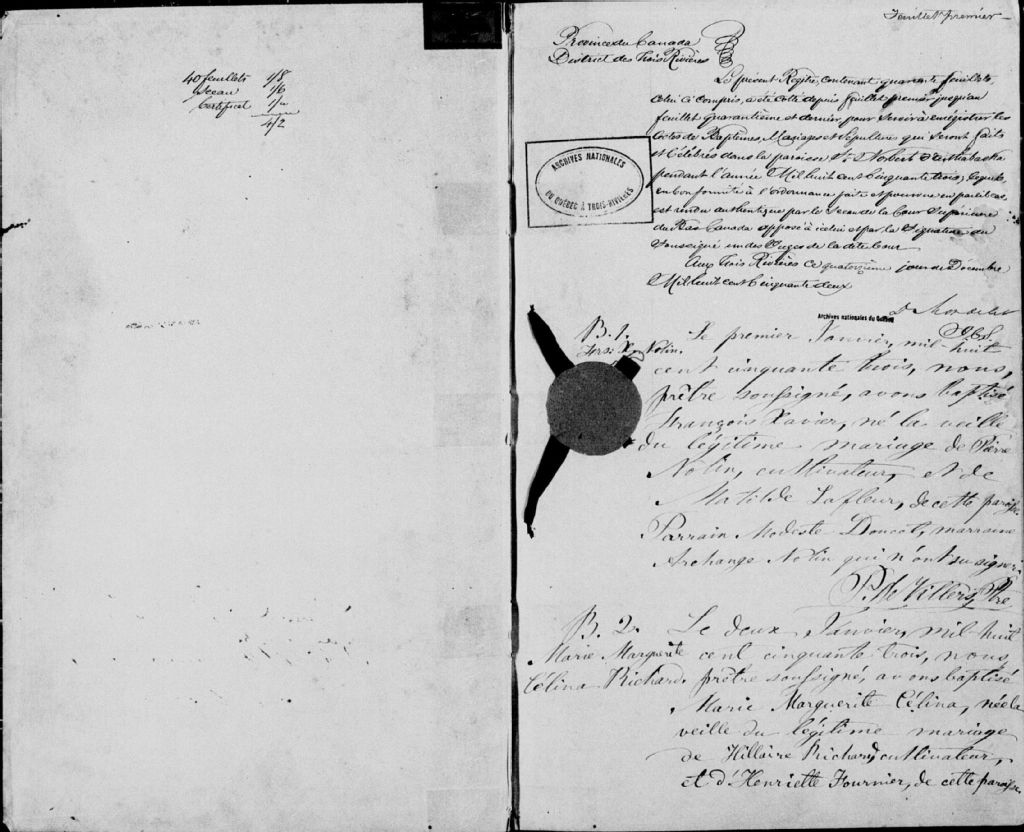 40 feuillets 1/8
Sceau 1/6
Certificat 1/"
4/2
Feuillet premier
Province du Canada
District des Trois Rivières
Le présent Registre, contenant quarante feuillets
celui ci compris, a été coté depuis feuillet premier jusqu'au
feuillet quarantième et dernier, pour servir à enrégistrer les
Actes de Baptêmes, Mariages et Sépultures qui seront faits
et célébrés dans la paroisse St. Norbert d'Arthabaska
pendant l'année Mil huit cent cinquante trois, lequel,
en conformité à l'ordonnance faite et pourvue en pareil cas,
est rendu authentique par le Sceau de la Cour Supérieure
du Bas Canada apposé à icelui et par la Signature du
Soussigné un des Juges de la dite Cour
Aux Trois Rivières ce quatorzième jour de Décembre
Mil huit cent cinquante deux
ARCHIVES NATIONALES
DU QUÉBEC À TROIS-RIVIÈRES
Archives nationales du Québec
B. 1.
Frs: X. Nolin.
Le premier Janvier, mil-huit
cent cinquante trois, nous,
prêtre soussigné, avons baptisé
François Xavier, né la veille
du légitime mariage de Pierre
Nolin, cultivateur, et de
Matilde Lafleur, de cette paroisse.
Parrain Modeste Doucet, marraine
Archange Nolin qui n'ont su signer.
P. De Villers, Ptre
B. 2.
Marie Marguerite
Célina Richard.
Le deux Janvier, mil-huit
cent cinquante trois, nous,
prêtre soussigné, avons baptisé
Marie Marguerite Célina, née la
veille du légitime mariage
de Hillaire Richard, cultivateur,
et d'Henriette Fournier, de cette paroisse.